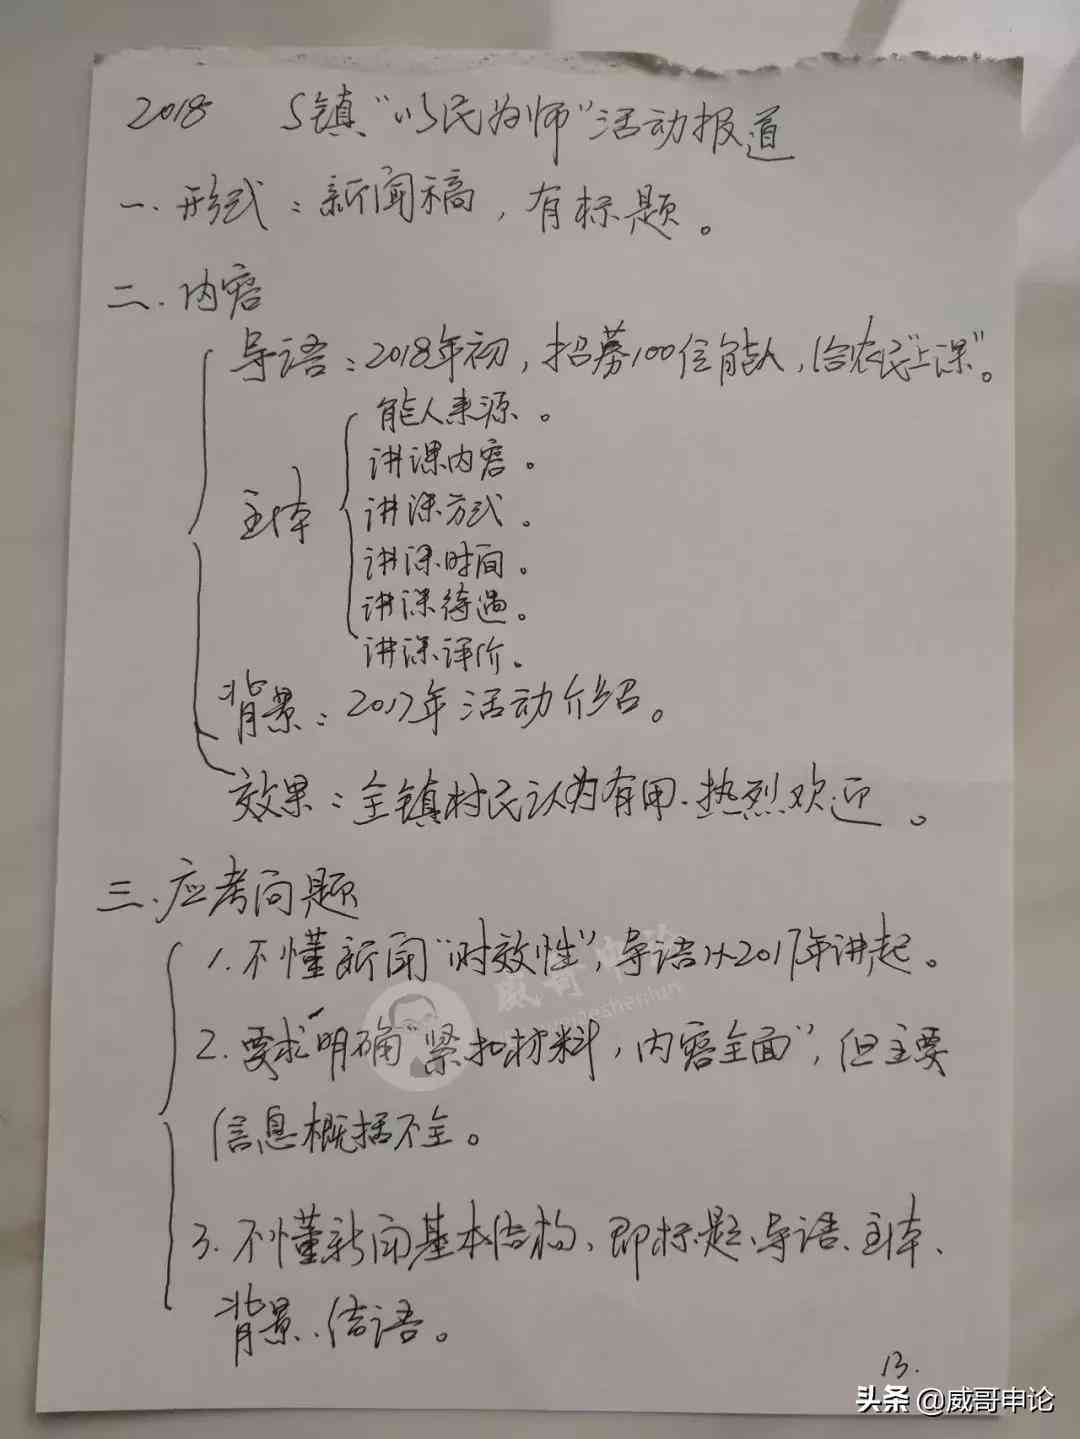 2018 S镇"以民为师"活动报道
一.形式：新闻稿，有标题。
二.内容
导语：2018年初，招募100位能人，给农民"上课"。
主体
能人来源。
讲课内容。
讲课方式。
讲课时间。
讲课待遇。
讲课评价。
背景：2017年活动介绍。
效果：全镇村民认为有用.热烈欢迎。
三.应考问题
1.不懂新闻"时效性"，导语从2017年讲起。
2.要求明确"紧扣材料，内容全面"，但主要
信息概括不全。
3.不懂新闻基本结构、即标题、导语、主体、
背景、结语。
13.
威哥申论
头条 @威哥申论